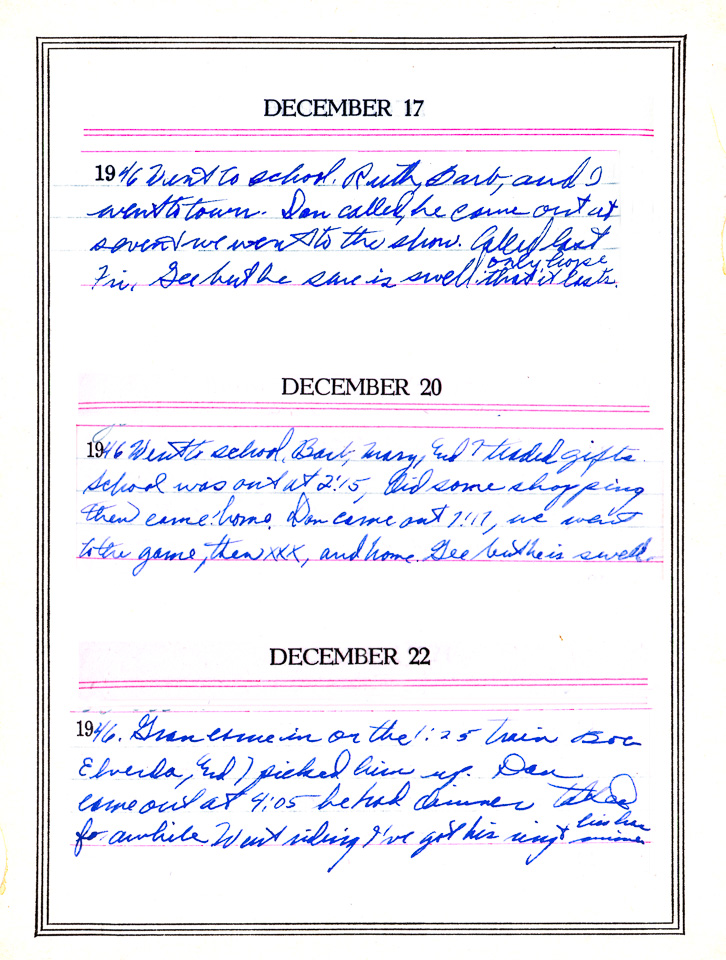 DECEMBER 17
1946 Went to school. Ruth, Barb, and I
went to town. Don called, he came out at
seven & we went to the show. Called last
Fri. Gee but he sure is swell, only hope
that it lasts.
DECEMBER 20
1946 Went to school. Barb, Mary, and I traded gifts
School was out at 2:15, Did some shopping
then came home. Don came out 7:17, we went
to the game, then xxx, and home. Gee but he is swell.
DECEMBER 22
1946. Gran came in on the 1:25 train
Elverda, and I picked him up. Don
came out at 4:05 he had dinner talked
for awhile Went riding I've got his ring &